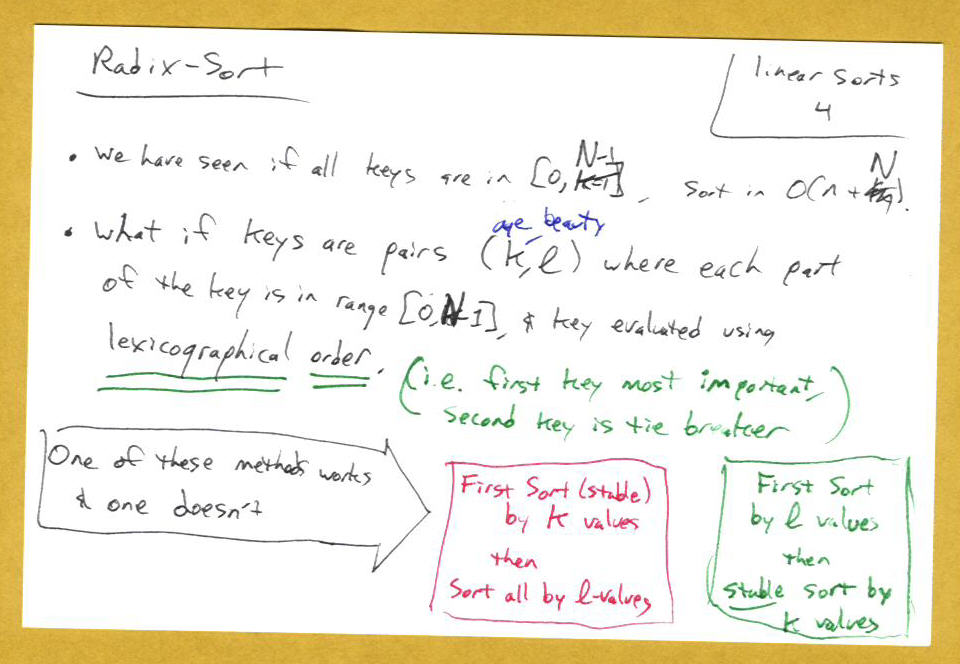 Radix-Sort
linear sorts
4
• We have seen if all keys are in [0, N-1], sort in O(n + N).
• What if keys are pairs (k, l) where each part
age beauty
of the key is in range [0, N-1], & key evaluated using
lexicographical order.
(i.e. first key most important,
second key is tie breaker)
One of these methods works
& one doesn't
First Sort (stable)
by k values
then
Sort all by l-values
First Sort
by l values
then
stable sort by
k values